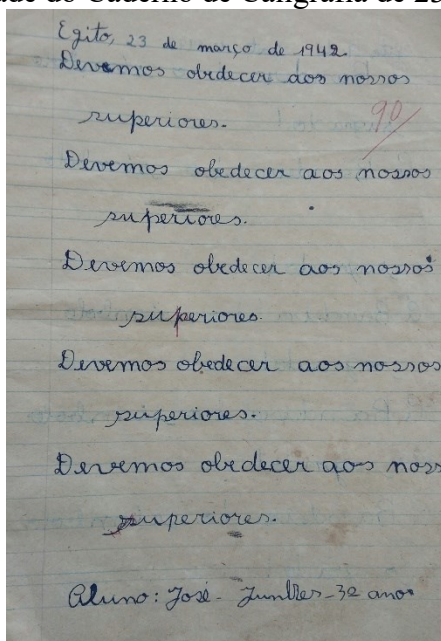 ade do Caderno de Caligrafia de 23
Egito, 23 de março de 1942.
Devemos obedecer aos nossos
superiores.
90
Devemos obedecer aos nossos
superiores.
Devemos obedecer aos nossos
superiores.
Devemos obedecer aos nossos
superiores.
Devemos obedecer aos noss
superiores.
Aluno: José - - 32 anos